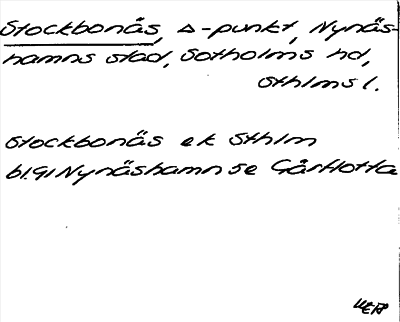 Stockbonäs, △-punkt, Nynäs-
hamns stad, Sotholms hd,
Sthlms l.
Stockbonäs ek Sthlm
bl. 91 Nynäshamn se Gårflotta